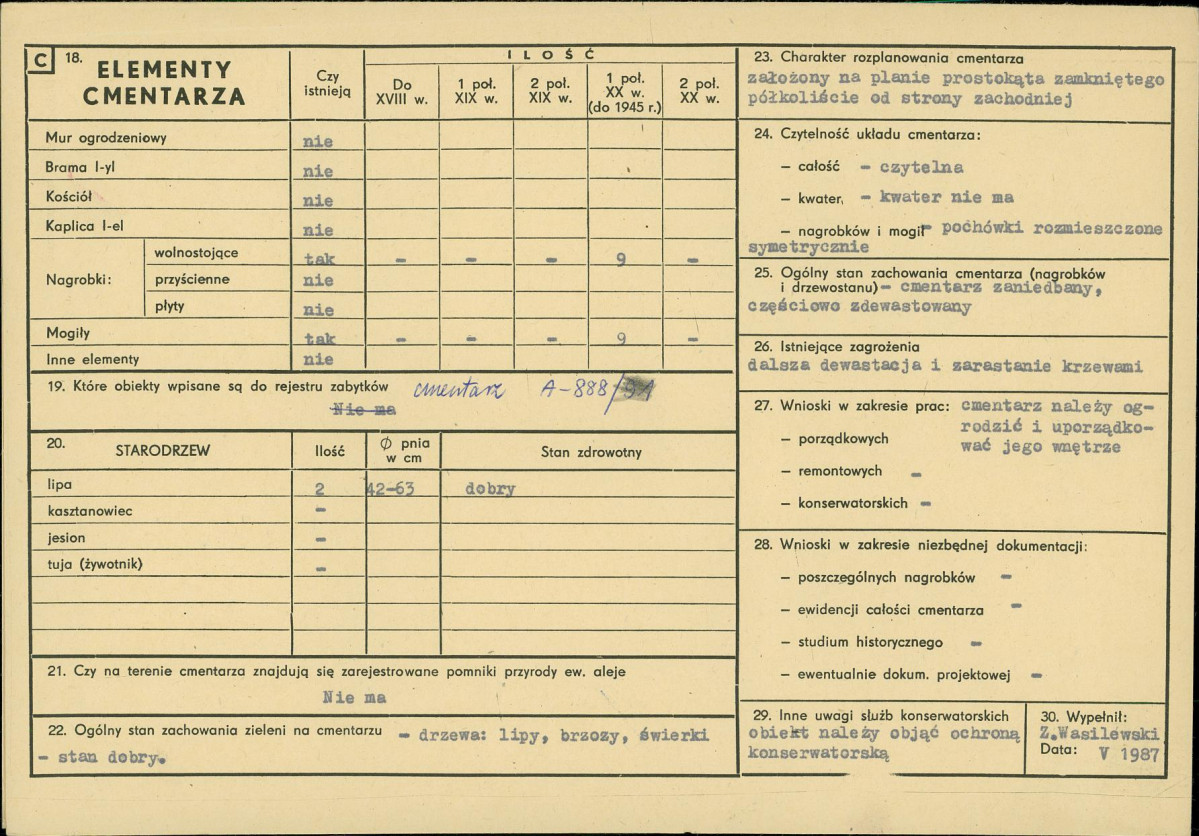 C 18. ELEMENTY CMENTARZA
Czy istnieją
ILOŚĆ
Do XVIII w.
1 poł. XIX w.
2 poł. XIX w.
1 poł. XX w. (do 1945 r.)
2 poł. XX w.
Mur ogrodzeniowy nie
Brama I-yl nie
Kościół nie
Kaplica I-el nie
Nagrobki:
wolnostojące tak - - - 9 -
przyścienne nie
płyty nie
Mogiły tak - - - 9 -
Inne elementy nie
19. Które obiekty wpisane są do rejestru zabytków cmentarz A-888/91
Nie ma
20. STARODRZEW Ilość ∅ pnia w cm Stan zdrowotny
lipa 2 42-63 dobry
kasztanowiec -
jesion -
tuja (żywotnik) -
21. Czy na terenie cmentarza znajdują się zarejestrowane pomniki przyrody ew. aleje
Nie ma
22. Ogólny stan zachowania zieleni na cmentarzu - drzewa: lipy, brzozy, świerki
- stan dobry.
23. Charakter rozplanowania cmentarza
założony na planie prostokąta zamkniętego
półkoliście od strony zachodniej
24. Czytelność układu cmentarza:
– całość - czytelna
– kwater, - kwater nie ma
– nagrobków i mogił - pochówki rozmieszczone
symetrycznie
25. Ogólny stan zachowania cmentarza (nagrobków
i drzewostanu) - cmentarz zaniedbany,
częściowo zdewastowany
26. Istniejące zagrożenia
dalsza dewastacja i zarastanie krzewami
27. Wnioski w zakresie prac: cmentarz należy og-
– porządkowych rodzić i uporządko-
wać jego wnętrze
– remontowych -
– konserwatorskich -
28. Wnioski w zakresie niezbędnej dokumentacji:
– poszczególnych nagrobków -
– ewidencji całości cmentarza -
– studium historycznego -
– ewentualnie dokum. projektowej -
29. Inne uwagi służb konserwatorskich
obiekt należy objąć ochroną
konserwatorską
30. Wypełnił:
Z.Wasilewski
Data: V 1987